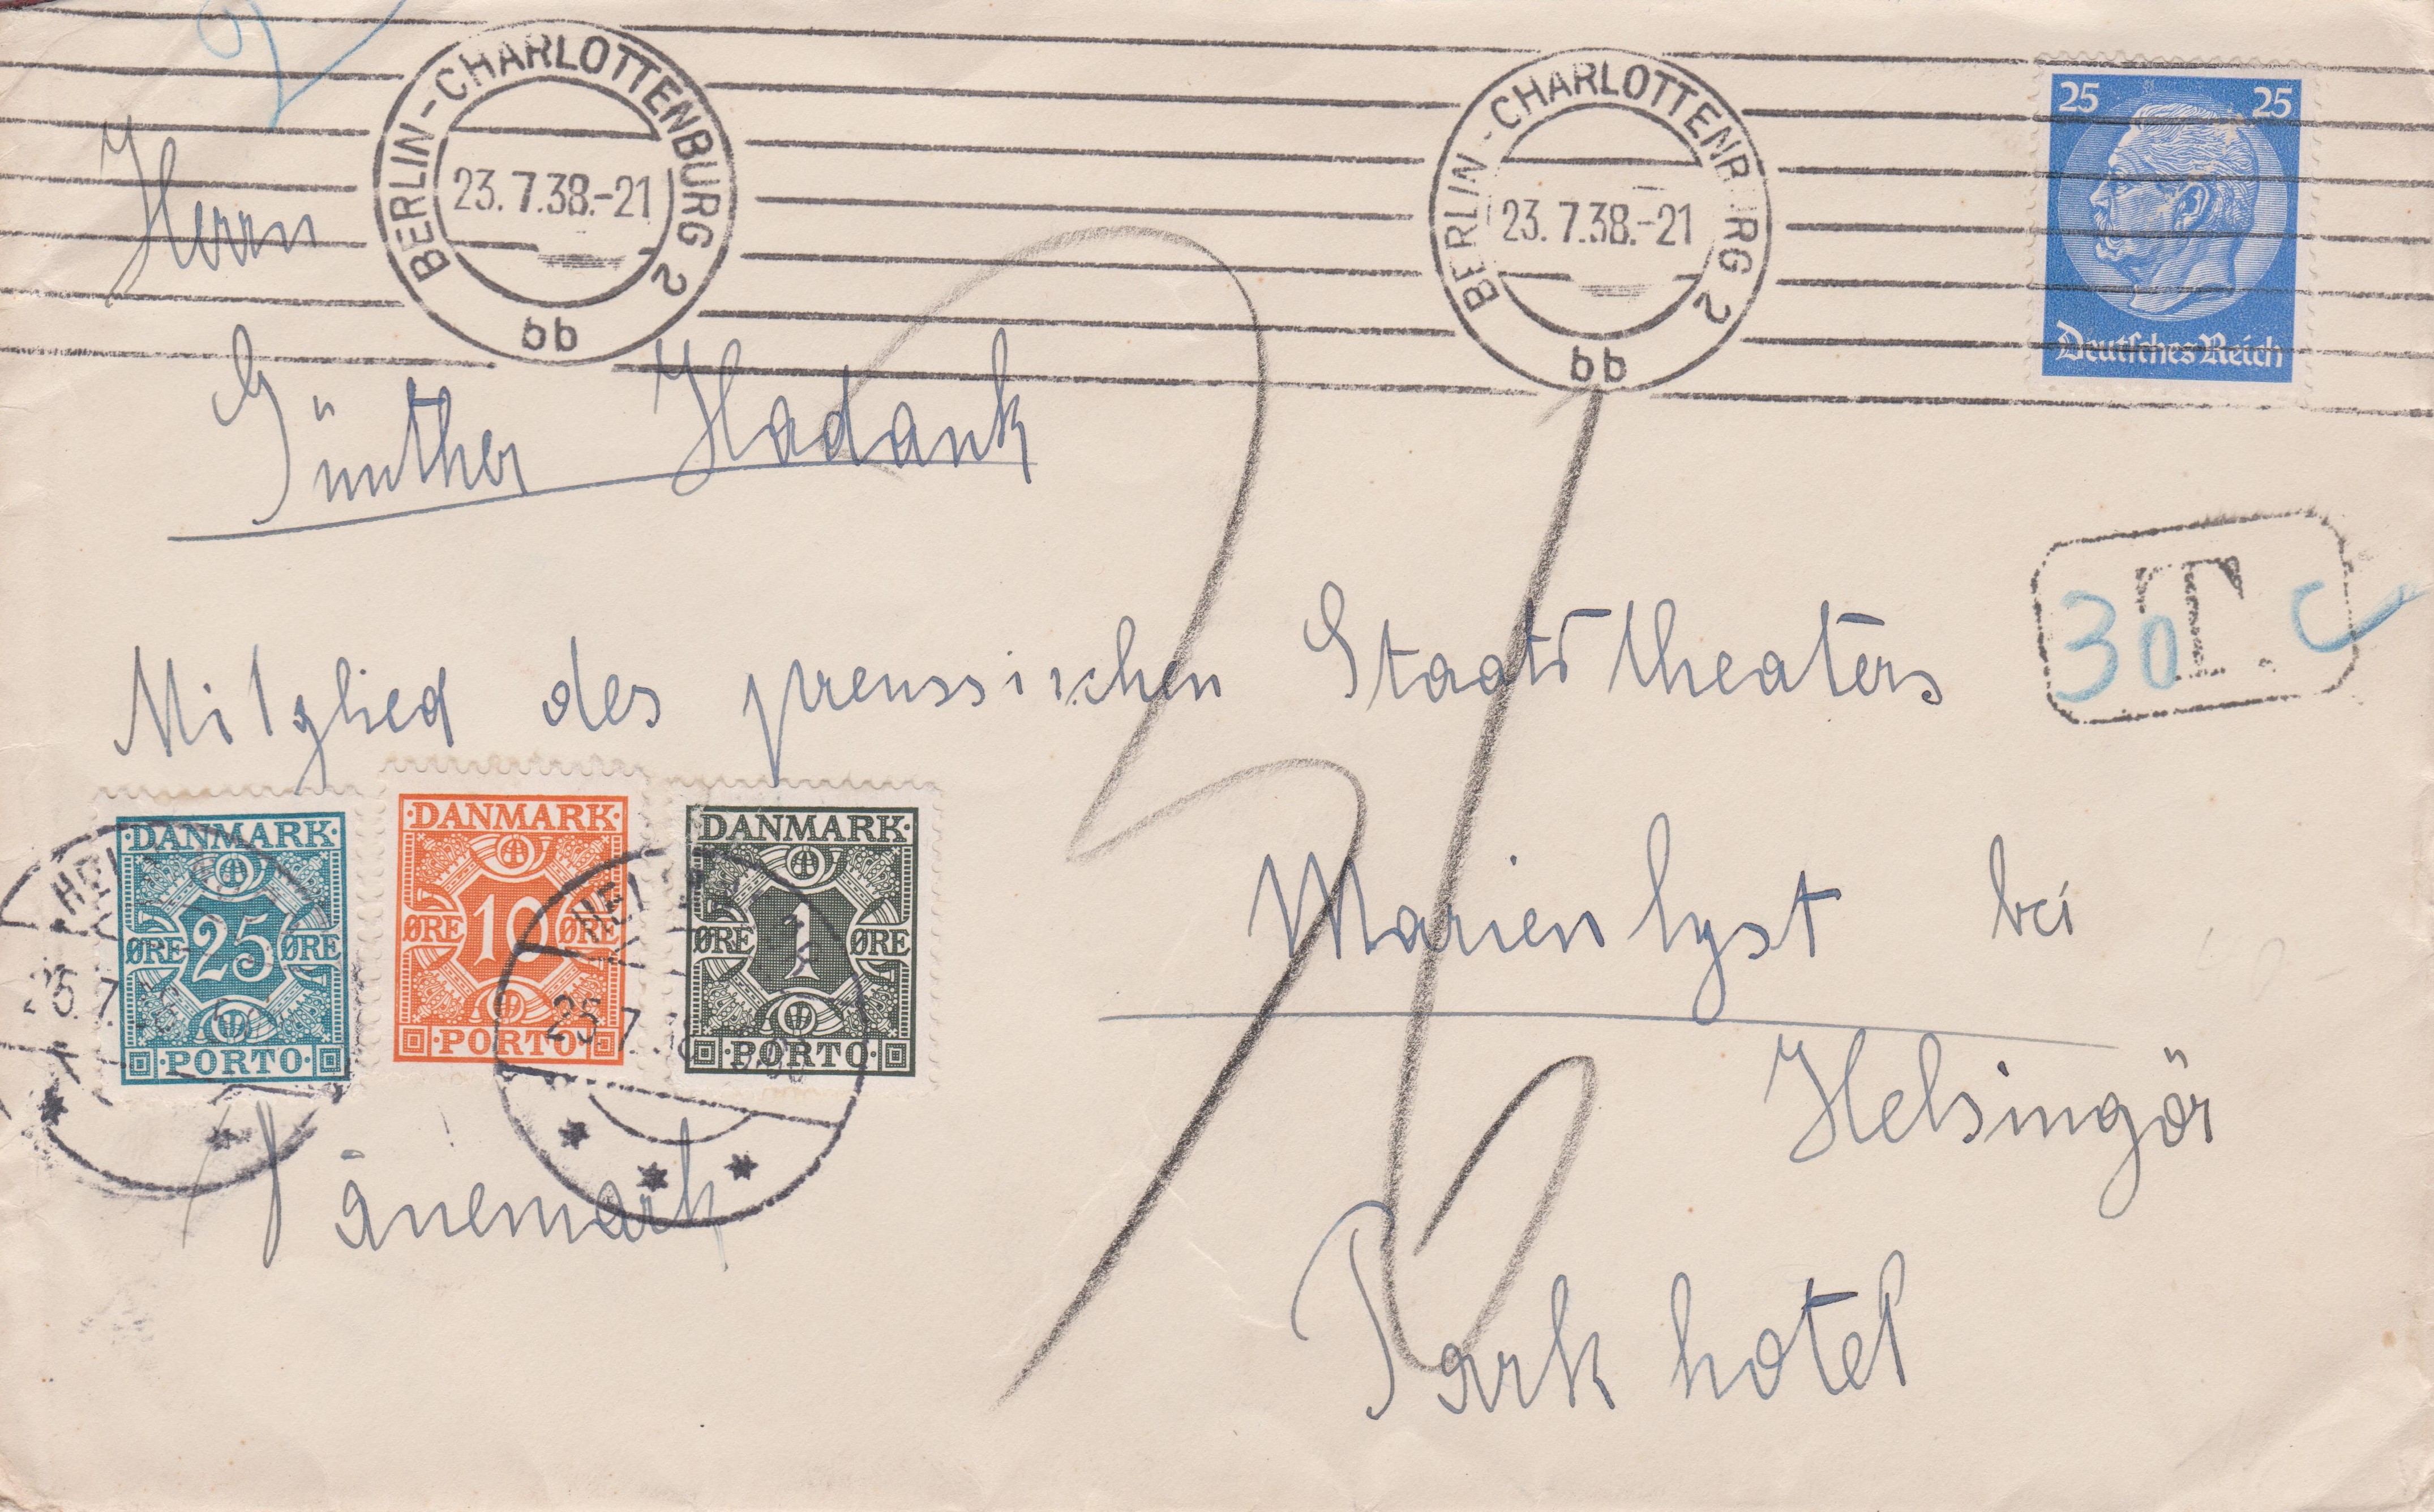 2
BERLIN-CHARLOTTENBURG 2
23.7.38.-21
bb
BERLIN-CHARLOTTENBURG 2
23.7.38.-21
bb
25 25
Deutsches Reich
Herrn
Günther Hadank
T.
30 c
Mitglied des preussischen Staatstheaters
36
DANMARK
ØRE 25 ØRE
PORTO
DANMARK
ØRE 10 ØRE
PORTO
DANMARK
ØRE 1 ØRE
PORTO
Marienlyst bei
Helsingör
Parkhotel
Dänemark